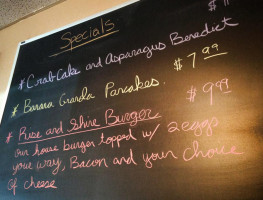 Specials
$ 11
* Crab Cake and Asparagus Benedict
$ 7.99
* Banana Granola Pancakes.
$ 9.99
* Rise and Shine Burger
Our house burger topped w/ 2 eggs
your way, Bacon and your choice
of cheese